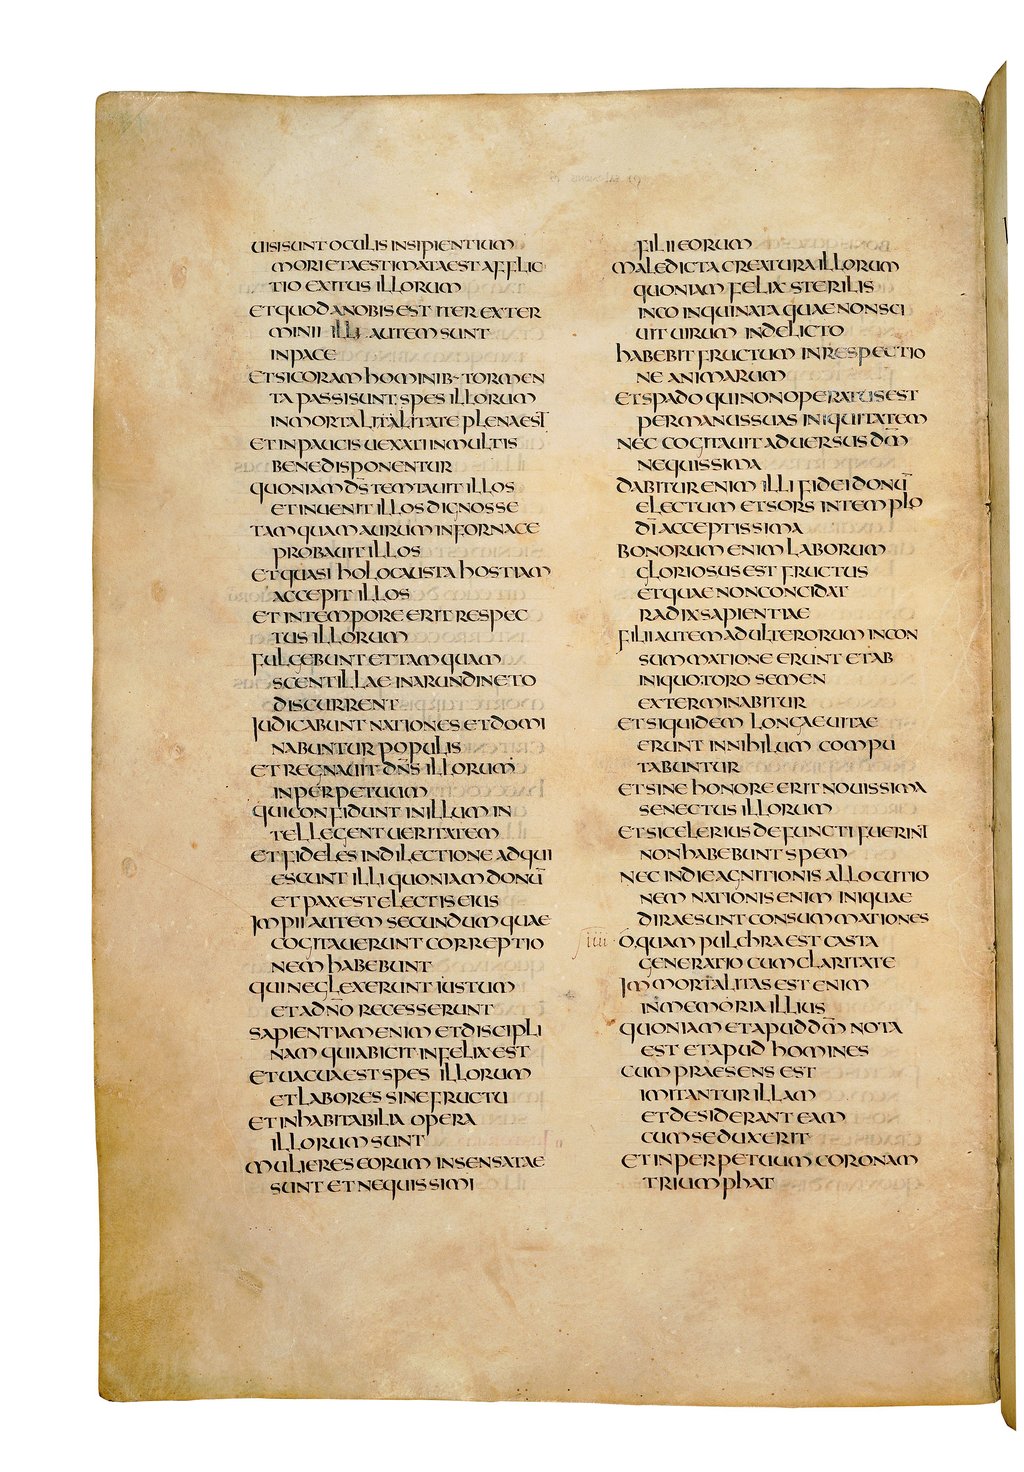 UISI SUNT OCULIS INSIPIENTIUM
MORI ET AESTIMATA EST AFFLIC
TIO EXITUS ILLORUM
ET QUOD A NOBIS EST ITER EXTER
MINII ILLI AUTEM SUNT
IN PACE
ET SI CORAM HOMINIB· TORMEN
TA PASSI SUNT SPES ILLORUM
INMORTALITALITATE PLENA EST
ET IN PAUCIS UEXATI IN MULTIS
BENE DISPONENTUR
QUONIAM D̄S TEMTAUIT ILLOS
ET INUENIT ILLOS DIGNOS SE
TAMQUAM AURUM IN FORNACE
PROBAUIT ILLOS
ET QUASI HOLOCAUSTA HOSTIAM
ACCEPIT ILLOS
ET IN TEMPORE ERIT RESPEC
TUS ILLORUM
FULGEBUNT ET TAMQUAM
SCENTILLAE IN ARUNDINETO
DISCURRENT
IUDICABUNT NATIONES ET DOMI
NABUNTUR POPULIS
ET REGNAUIT D̄N̄S ILLORUM
IN PERPETUUM
QUI CONFIDUNT IN ILLUM IN
TELLEGENT UERITATEM
ET FIDELES IN DILECTIONE ADQUI
ESCUNT ILLI QUONIAM DONŪ
ET PAX EST ELECTIS EIUS
IMPII AUTEM SECUNDUM QUAE
COGITAUERUNT CORREPTIO
NEM HABEBUNT
QUI NEGLEXERUNT IUSTUM
ET A D̄N̄O RECESSERUNT
SAPIENTIAM ENIM ET DISCIPLI
NAM QUI ABICIT INFELIX EST
ET UACUA EST SPES ILLORUM
ET LABORES SINE FRUCTU
ET INHABITABILIA OPERA
ILLORUM SUNT
MULIERES EORUM INSENSATAE
SUNT ET NEQUISSIMI
FILII EORUM
MALEDICTA CREATURA ILLORUM
QUONIAM FELIX STERILIS
INCOINQUINATA QUAE NON SCI
UIT UIRUM IN DELICTO
HABEBIT FRUCTUM IN RESPECTIO
NE ANIMARUM
ET SPADO QUI NON OPERATUS EST
PER MANUS SUAS INIQUITATEM
NEC COGITAUIT ADUERSUS D̄M̄
NEQUISSIMA
DABITUR ENIM ILLI FIDEI DONŪ
ELECTUM ET SORS IN TEMPLO
D̄I ACCEPTISSIMA
BONORUM ENIM LABORUM
GLORIOSUS EST FRUCTUS
ET QUAE NON CONCIDAT
RADIX SAPIENTIAE
FILII AUTEM ADULTERORUM IN CON
SUMMATIONE ERUNT ET AB
INIQUO TORO SEMEN
EXTERMINABITUR
ET SI QUIDEM LONGAE UITAE
ERUNT IN NIHILUM COMPU
TABUNTUR
ET SINE HONORE ERIT NOUISSIMA
SENECTUS ILLORUM
ET SI CELERIUS DEFUNCTI FUERINT
NON HABEBUNT SPEM
NEC IN DIE AGNITIONIS ALLOCUTIO
NEM NATIONIS ENIM INIQUAE
DIRAE SUNT CONSUMMATIONES
IIII O QUAM PULCHRA EST CASTA
GENERATIO CUM CLARITATE
IMMORTALITAS EST ENIM
IN MEMORIA ILLIUS
QUONIAM ET APUD D̄M̄ NOTA
EST ET APUD HOMINES
CUM PRAESENS EST
IMITANTUR ILLAM
ET DESIDERANT EAM
CUM SE DUXERIT
ET IN PERPETUUM CORONAM
TRIUMPHAT